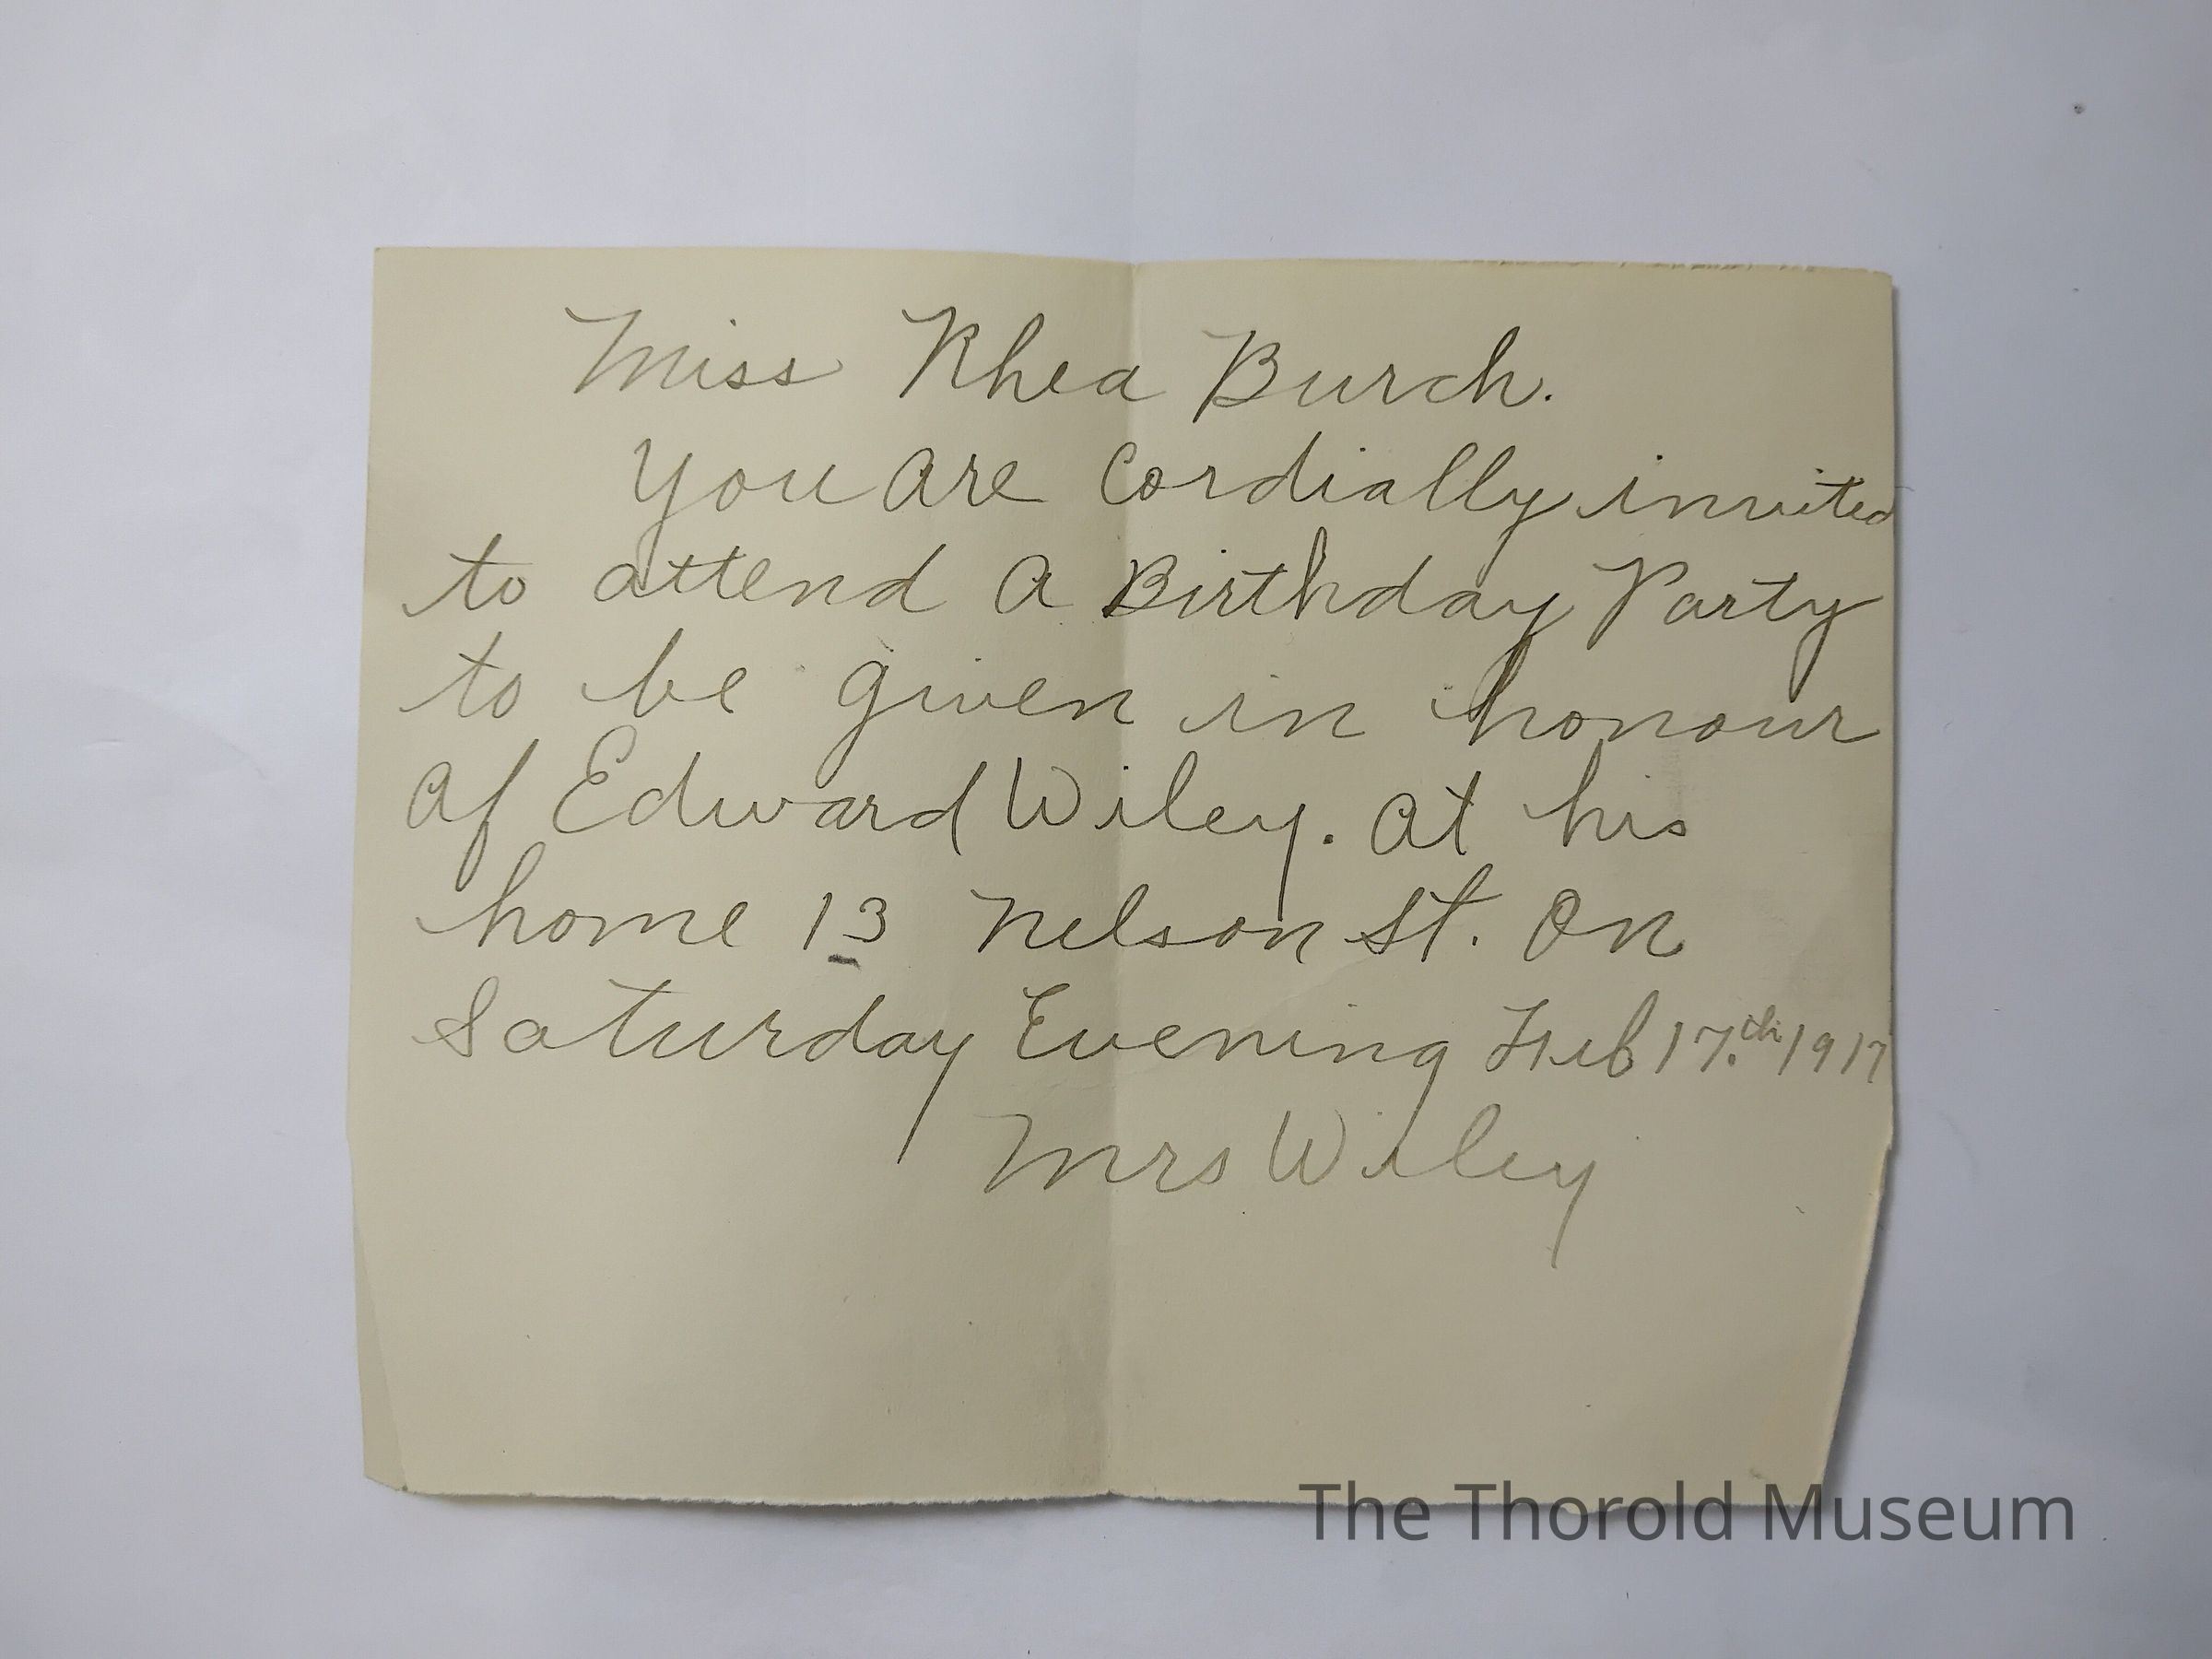 Miss Rhea Burch.
You are Cordially invited
to attend a Birthday Party
to be given in honour
of Edward Wiley. at his
home 13 Nelson St. On
Saturday Evening Feb 17.th 1917
Mrs Wiley
The Thorold Museum